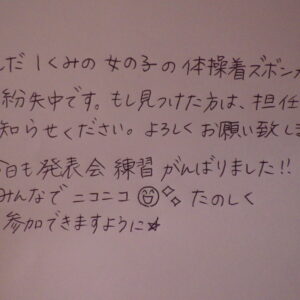 だ 1くみの 女の子の 体操着ズボン
紛失中です。もし見つけた方は、担任
知らせください。よろしく お願い致し
日も 発表会 練習 がんばりました!!
みんなで ニコニコ 😊✨ たのしく
参加できますように☆